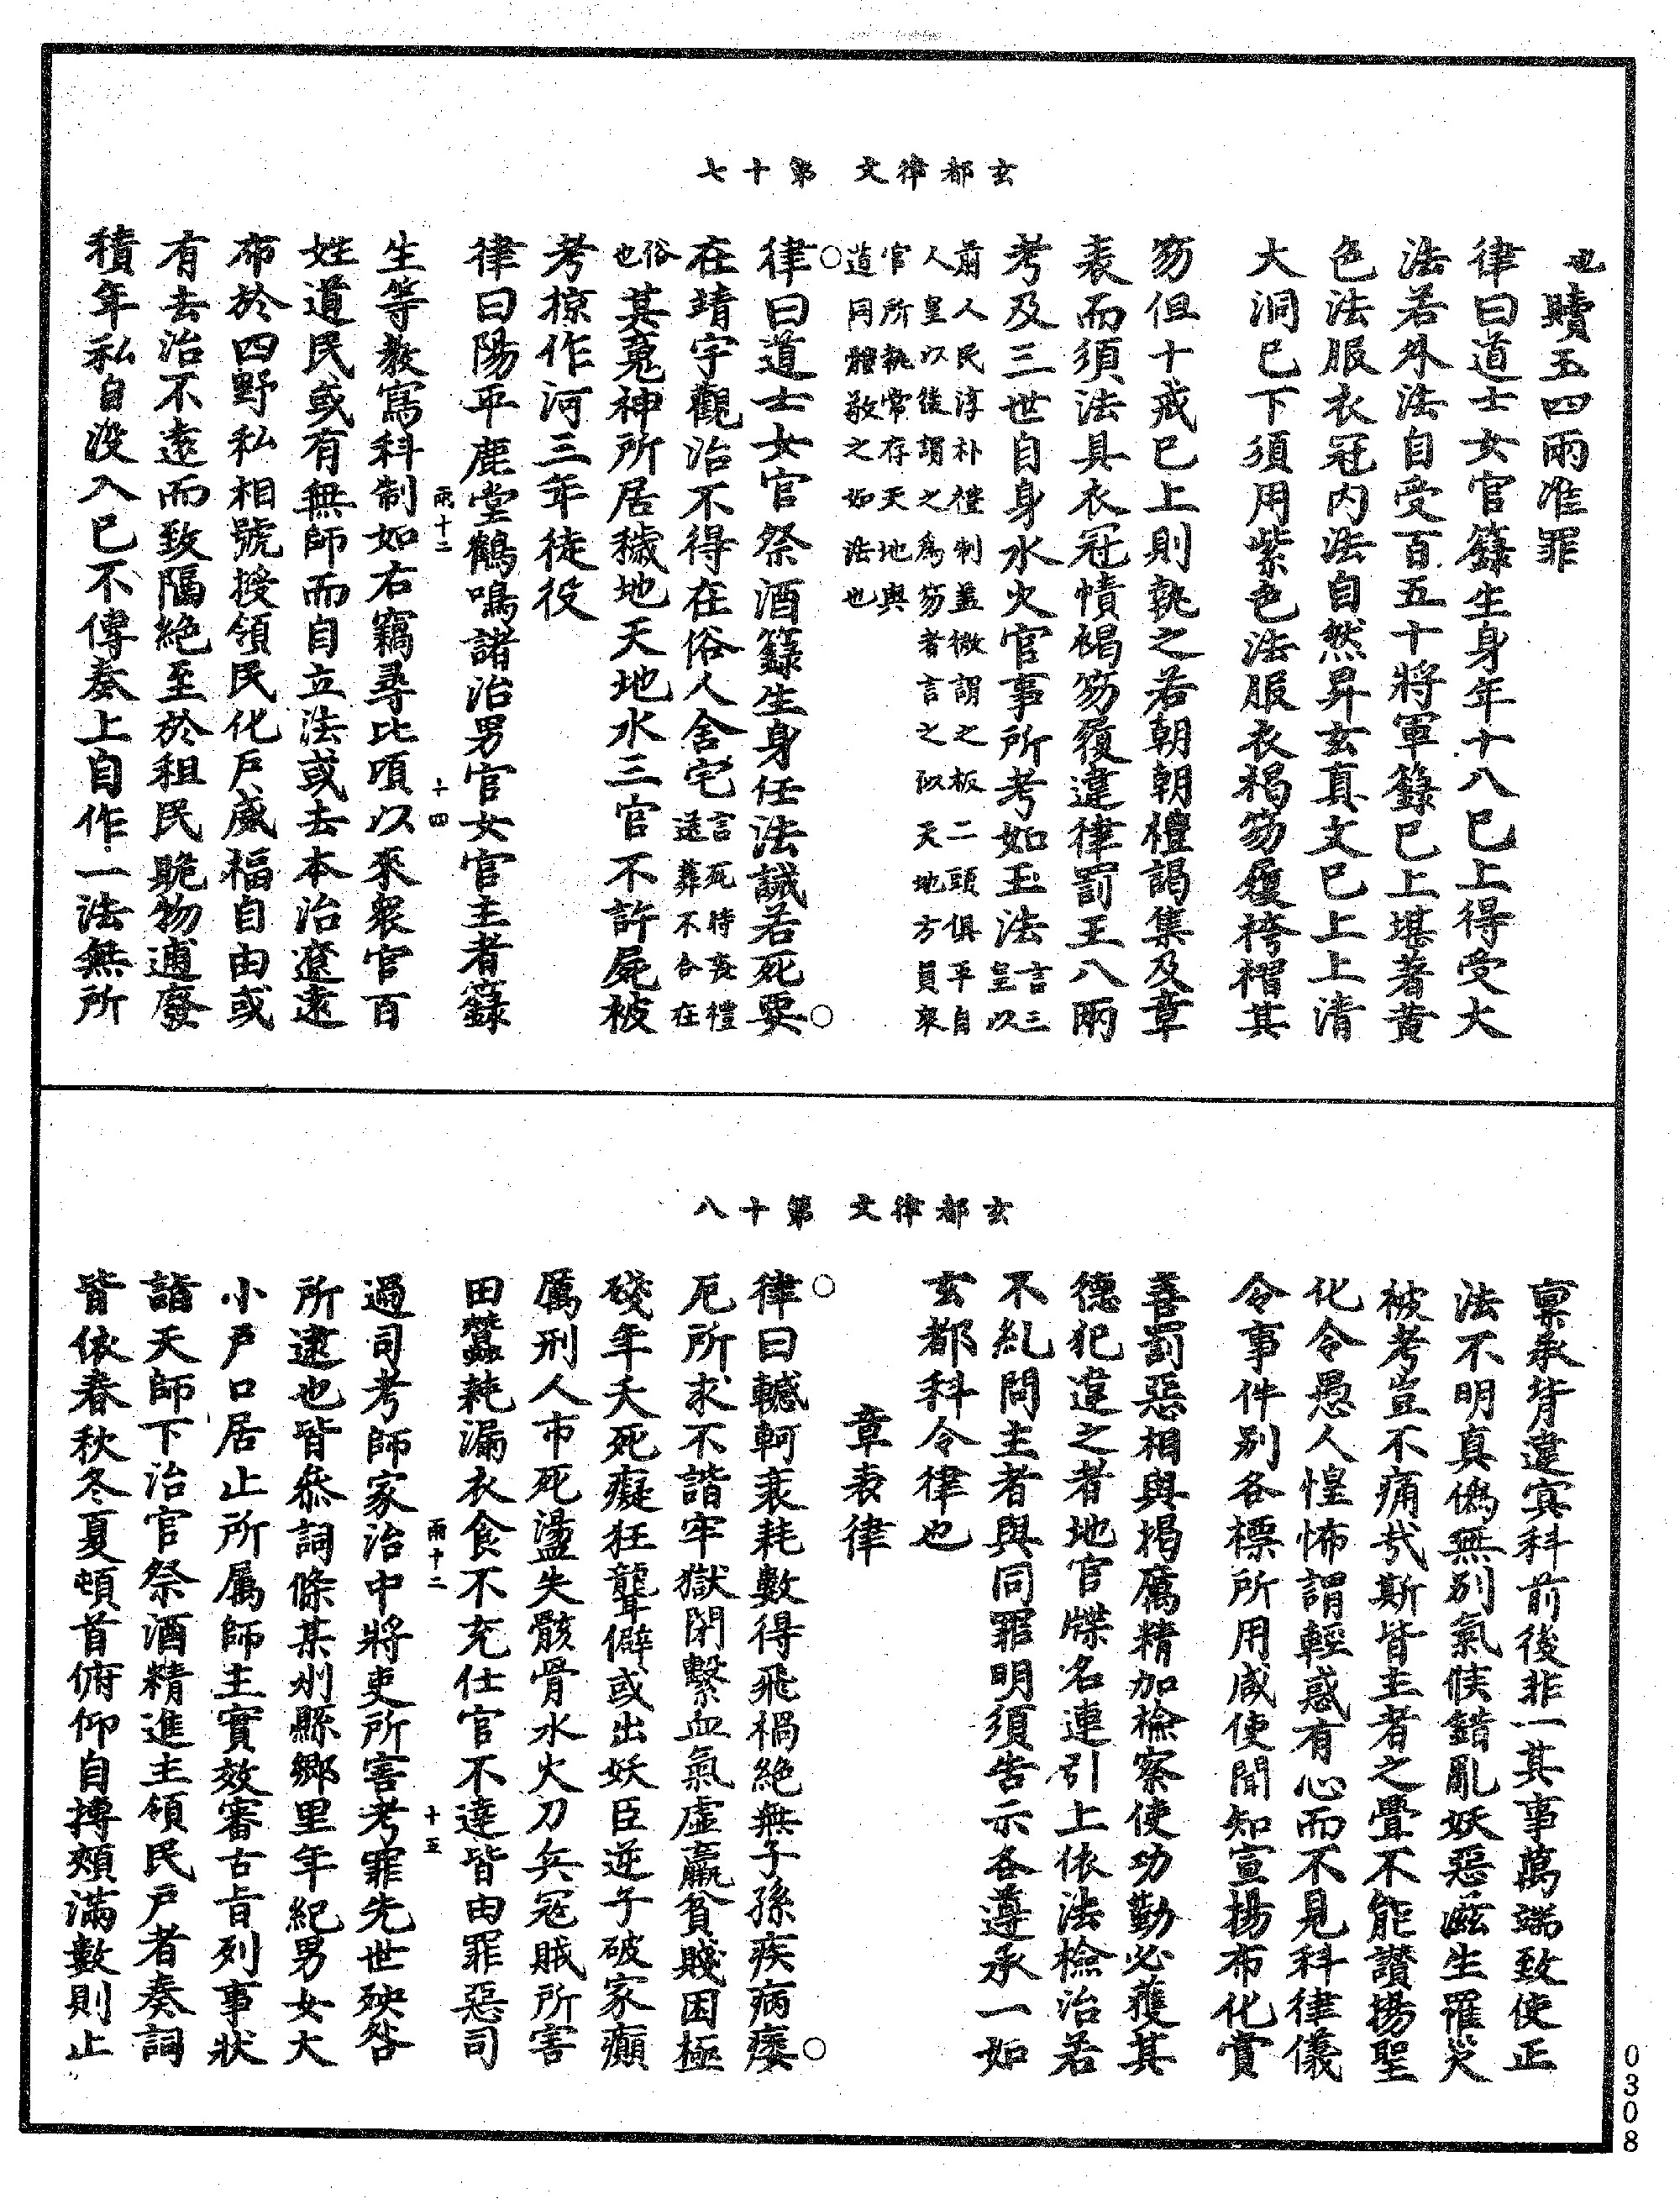 玄都律文 第十七
也贖玉四兩准罪
律曰道士女官籙生身年十八已上得受大
法若外法自受百五十將軍籙已上堪著黃
色法服衣冠內法自然昇玄真文已上上清
大洞已下須用紫色法服衣褐笏履袴褶其
笏但十戒已上則執之若朝朝禮謁集及章
表而須法具衣冠幘褐笏履違律罰王八兩
考及三世自身水火官事所考如玉法言三皇以
前人民淳朴禮制蓋微謂之板二頭俱平自
人皇以後謂之為笏者言之似天地方員衆
官所執常存天地與
道同體敬之如法也
律曰道士女官祭酒籙生身任法誡若死要
在靖宇觀治不得在俗人舍宅言死時喪禮送葬不合在
俗也其鬼神所居穢地天地水三官不許屍被
考掠作河三年徒役
律曰陽平鹿堂鶴鳴諸治男官女官主者籙
兩十二 十四
生等教寫科制如右竊尋比項以來衆官百
姓道民或有無師而自立法或去本治遼遠
布於四野私相號授領民化戶威福自由或
有去治不遠而致隔絕至於租民賧物逋廢
積年私自沒入已不傳奏上自作一法無所
玄都律文 第十八
稟承背違寘科前後非一其事萬端致使正
法不明真偽無別氣候錯亂妖惡滋生羅災
被考豈不痛哉斯皆主者之舋不能讚揚聖
化令愚人惶怖謂輕惑有心而不見科律儀
令事件別各標所用咸使聞知宣揚布化賞
善罰惡相與揭厲精加檢察使功勤必蒦其
德犯違之者地官牒名連引上依法檢治若
不糺問主者與同罪明須告示各遵承一如
玄都科令律也
章表律
律曰轗軻衰耗數得飛禍絕無子孫疾病痿
厄所求不諧牢獄閉繫血氣虛羸貧賤困極
殘年夭死癡狂聾聵僻或出妖臣逆子破家癲
厲刑人市死盪失骸骨水火刀兵寇賊所害
田蠶耗漏衣食不充仕官不達皆由罪惡司
兩十二 十五
過司考師家治中將吏所害考罪先世殃咎
所逮也皆叅詞條某州縣鄉里年紀男女大
小戶口居止所屬師主實效審古旨列事狀
詣天師下治官祭酒精進主領民戶者奏詞
皆依春秋冬夏頓首俯仰自搏頰滿數則止
0308